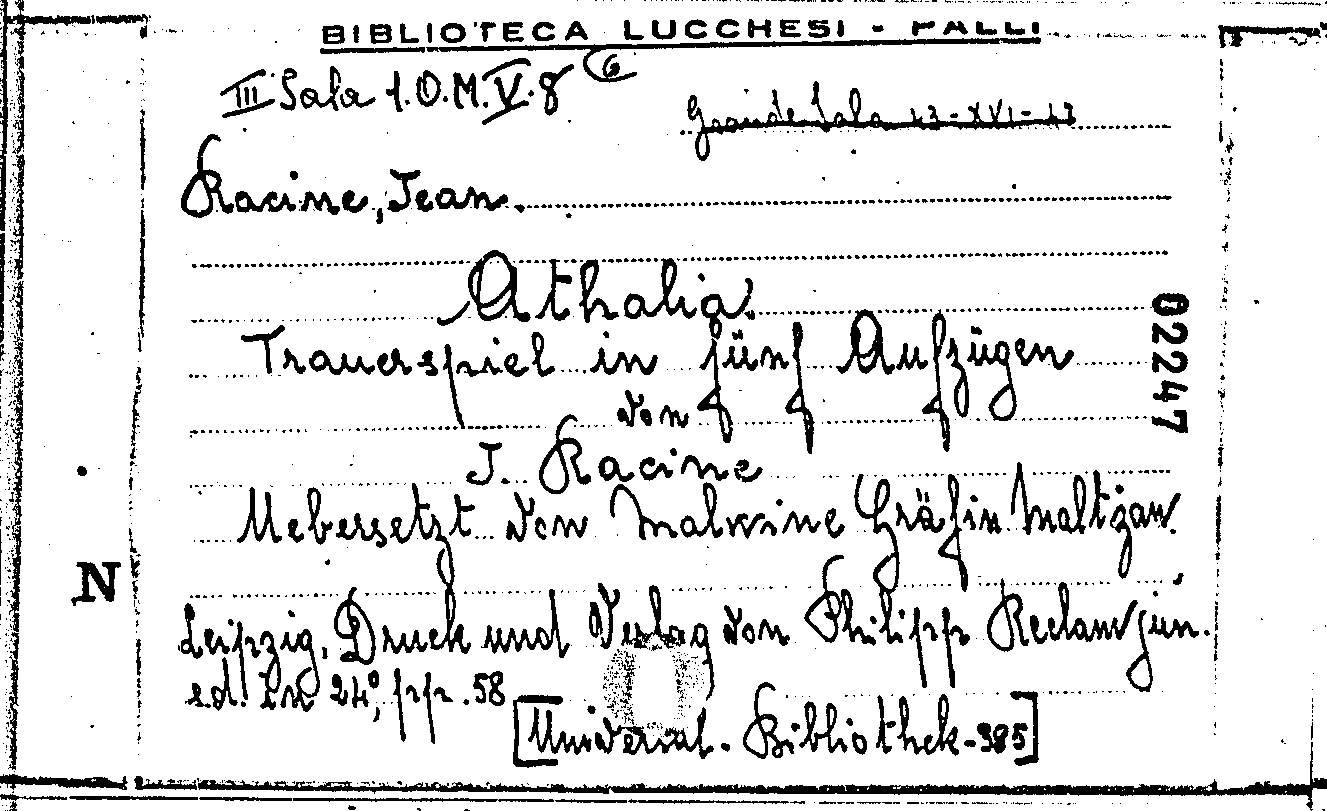 BIBLIOTECA LUCCHESI - PALLI
III Sala 1.O.M.V.8 (6
Grande Sala 23-XVI-
Racine, Jean.
Athalia.
Trauerspiel in fünf Aufzügen
von
J. Racine
Uebersetzt von Malwine Gräfin Maltzan.
Leipzig, Druck und Verlag von Philipp Reclam jun.
s.d. in 24°, pp. 58
[Universal-Bibliothek-385]
02247
N